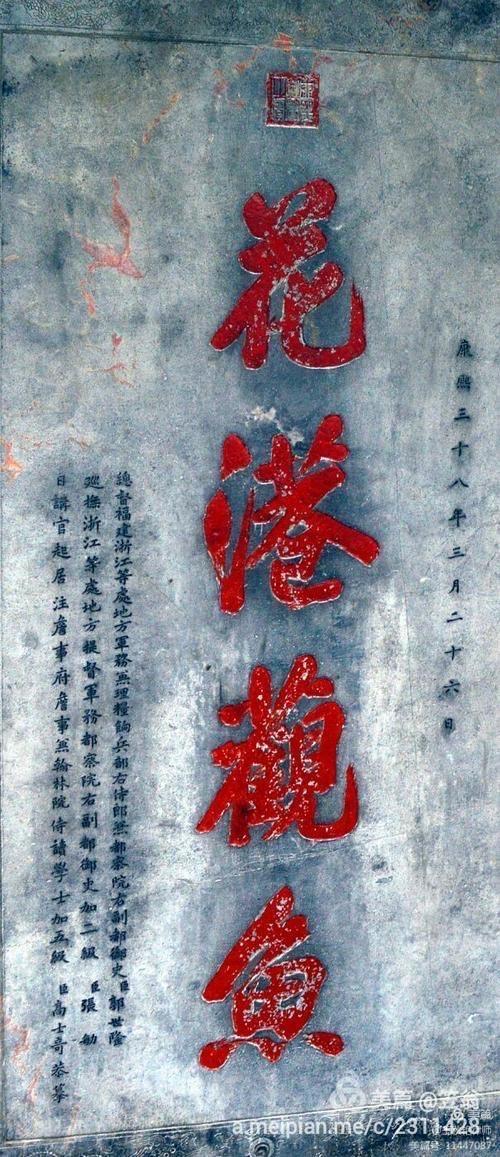 康熙三十八年三月二十六日
花港觀魚
總督福建浙江等處地方軍務兼理糧餉兵部右侍郎兼都察院右副都御史臣郭世隆
巡撫浙江等處地方提督軍務都察院右副都御史加二級 臣張敏
日講官起居注詹事府詹事兼翰林院侍讀學士加五級 臣高士奇恭摹
美篇
a.meipian.me/c/2311428
美篇号 11447087